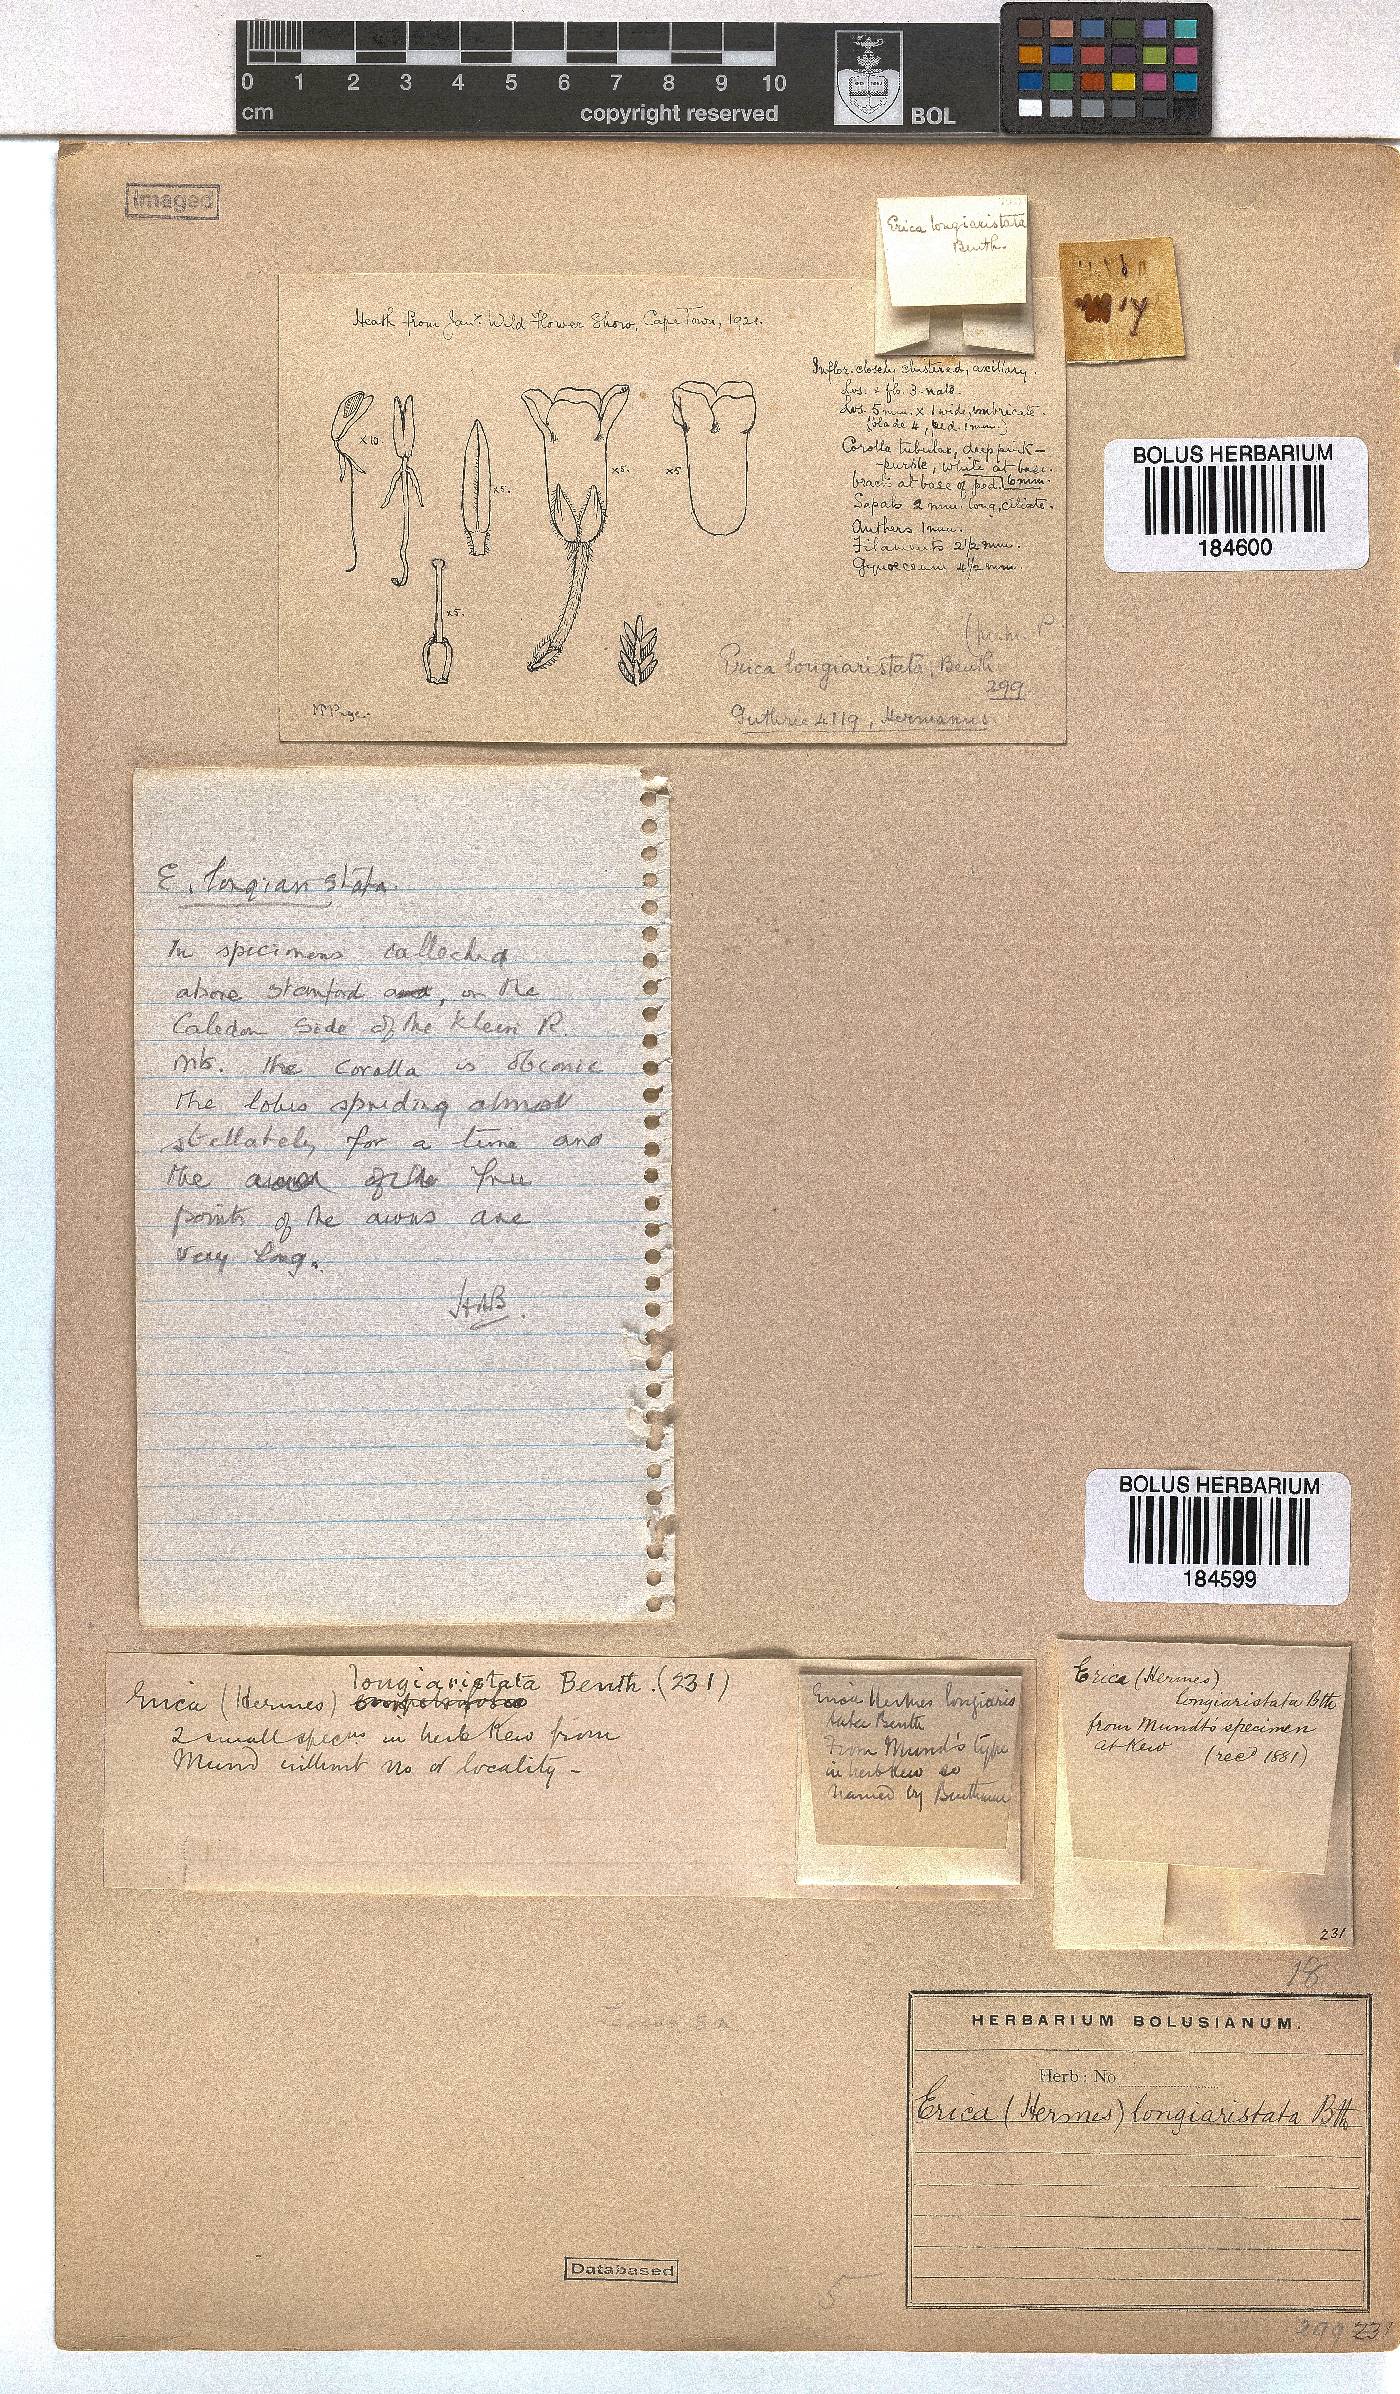 0 1 2 3 4 5 6 7 8 9 10
cm
copyright reserved
BOL
Imaged
Erica longiaristata
Benth.
Heath from Jany. Wild Flower Show, Cape Town, 1921.
Inflor. closely clustered, axillary.
Lvs. & fls. 3-nate.
Lvs. 5 mm. x 1 wide, imbricate.
(blade 4, ped. 1 mm.)
Corolla tubular, deep pink-
purple, white at base.
bract at base of ped. 6 mm.
Sepals 2 mm. long, ciliate.
Anthers 1 mm.
Filaments 2 1/2 mm.
Gynoecium 4 1/2 mm.
x 10
x 5.
x 5.
x 5
x 5.
Erica longiaristata, Benth
299
Guthrie 4119, Hermanus.
M Page.
BOLUS HERBARIUM
184600
E. longiaristata.
In specimens collected
above Stanford and, on the
Caledon Side of the Klein R.
Mts. the corolla is obconic
the lobes spreding almost
stellately for a time and
the of the free
points of the awns are
very long.
HAB.
BOLUS HERBARIUM
184599
longiaristata Benth. (231)
Erica (Hermes)
2 small specns in herb Kew from
Mund without no or locality -
Erica Hermes longiaris
tata Benth
From Mund's type
in herb Kew so
named by Bentham
Erica (Hermes)
longiaristata Bth
from Mundt's specimen
at Kew (recd 1881)
231
18
HERBARIUM BOLUSIANUM.
Herb: No
Erica (Hermes) longiaristata Bth
Databased
5
299 231